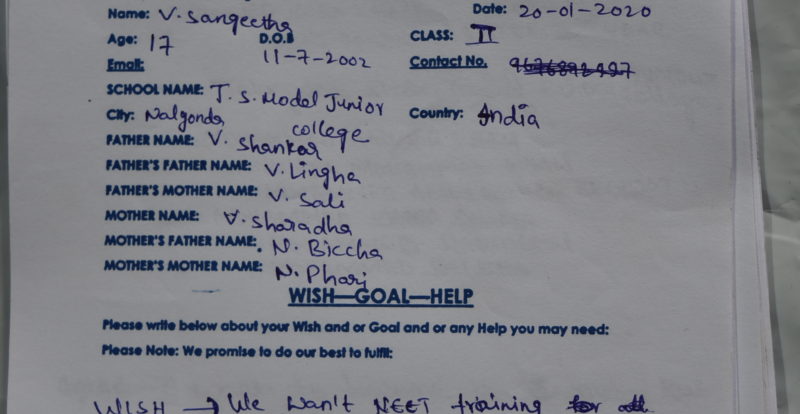 Name: V. Sangeetha Date: 20-01-2020
Age: 17 D.O.B 11-7-2002 CLASS: II
Email: Contact No.
SCHOOL NAME: T. S. Model Junior college
City: Nalgonda Country: India
FATHER NAME: V. Shankar
FATHER'S FATHER NAME: V. Lingha
FATHER'S MOTHER NAME: V. Sali
MOTHER NAME: V. Sharadha
MOTHER'S FATHER NAME: N. Biccha
MOTHER'S MOTHER NAME: N. Phari
WISH—GOAL—HELP
Please write below about your Wish and or Goal and or any Help you may need:
Please Note: We promise to do our best to fulfil:
WISH → We Wan't NEET training for all